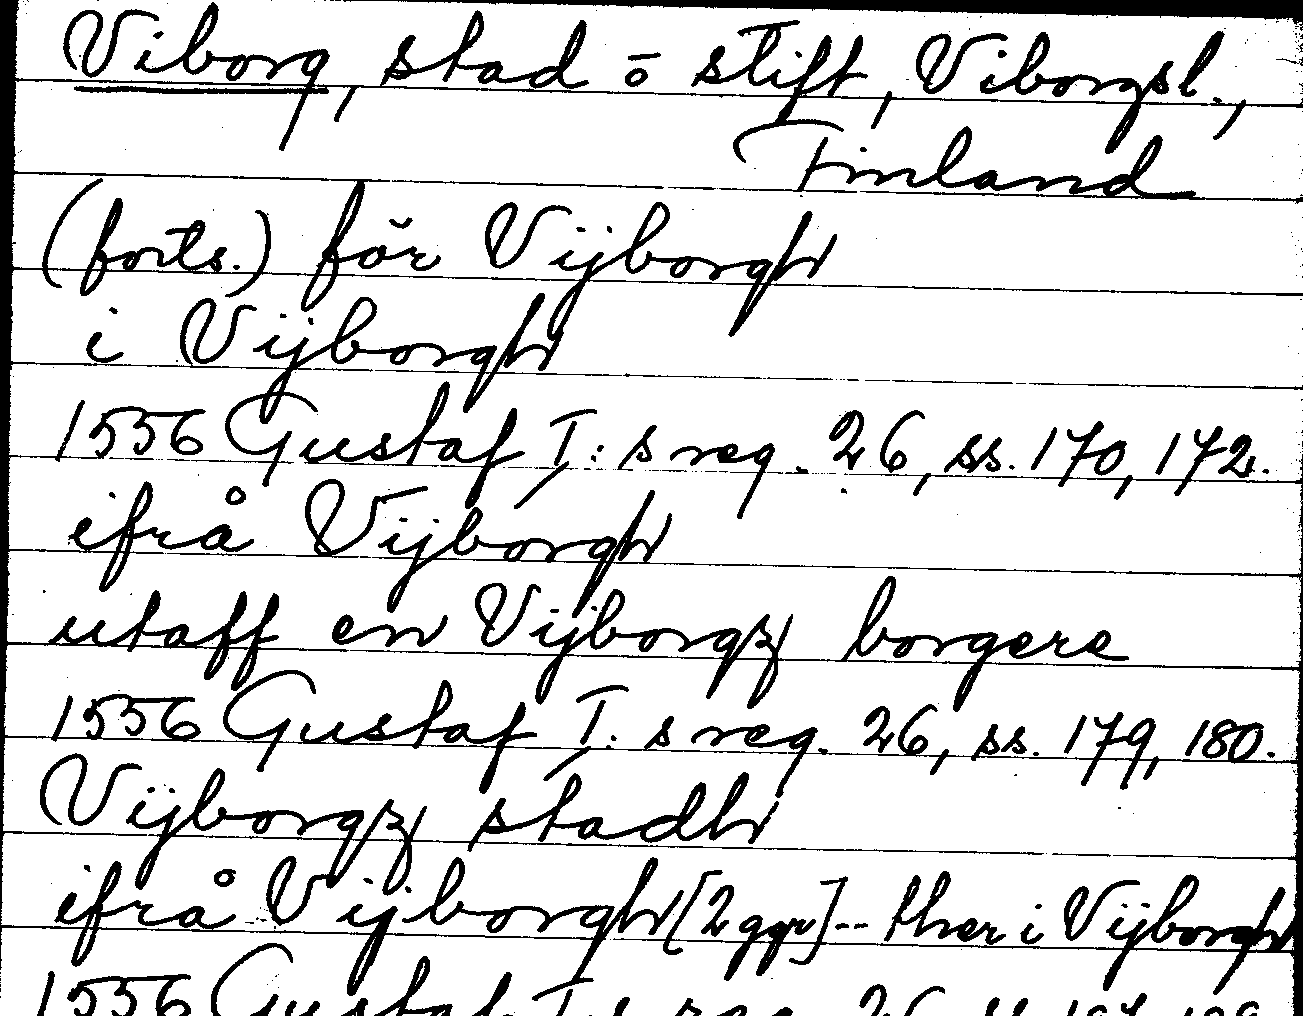 Viborg, stad ō stift, Viborgsl.,
Finland
(forts.) för Vijborgh
i Vijborgh
1556 Gustaf I:s reg. 26, ss. 170, 172.
ifrå Vijborgh
utaff en Vijborgz borgere
1556 Gustaf I:s reg. 26, ss. 179, 180.
Vijborgz stadh
ifrå Vijborgh [2 ggr] -- ther i Vijborgh
1556 Gustaf I:s reg. 26, ss.